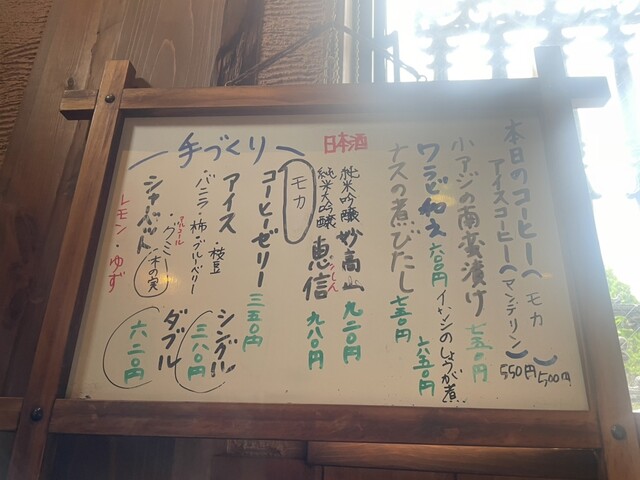 本日のコーヒー(モカ) 500円
アイスコーヒー(マンデリン) 550円
小アジの南蛮漬け 七五〇円
ワラビ和え 六〇〇円
イワシのしょうが煮 六五〇円
ナスの煮びたし 七五〇円
日本酒
純米吟醸 妙高山 九二〇円
純米大吟醸 恵信 九八〇円
手づくり
モカ
コーヒーゼリー 三五〇円
アイス
・枝豆
・バニラ・柿・ブルーベリー
シングル 三八〇円
・グミ・木の実
シャーベット
レモン・ゆず
ダブル 六二〇円